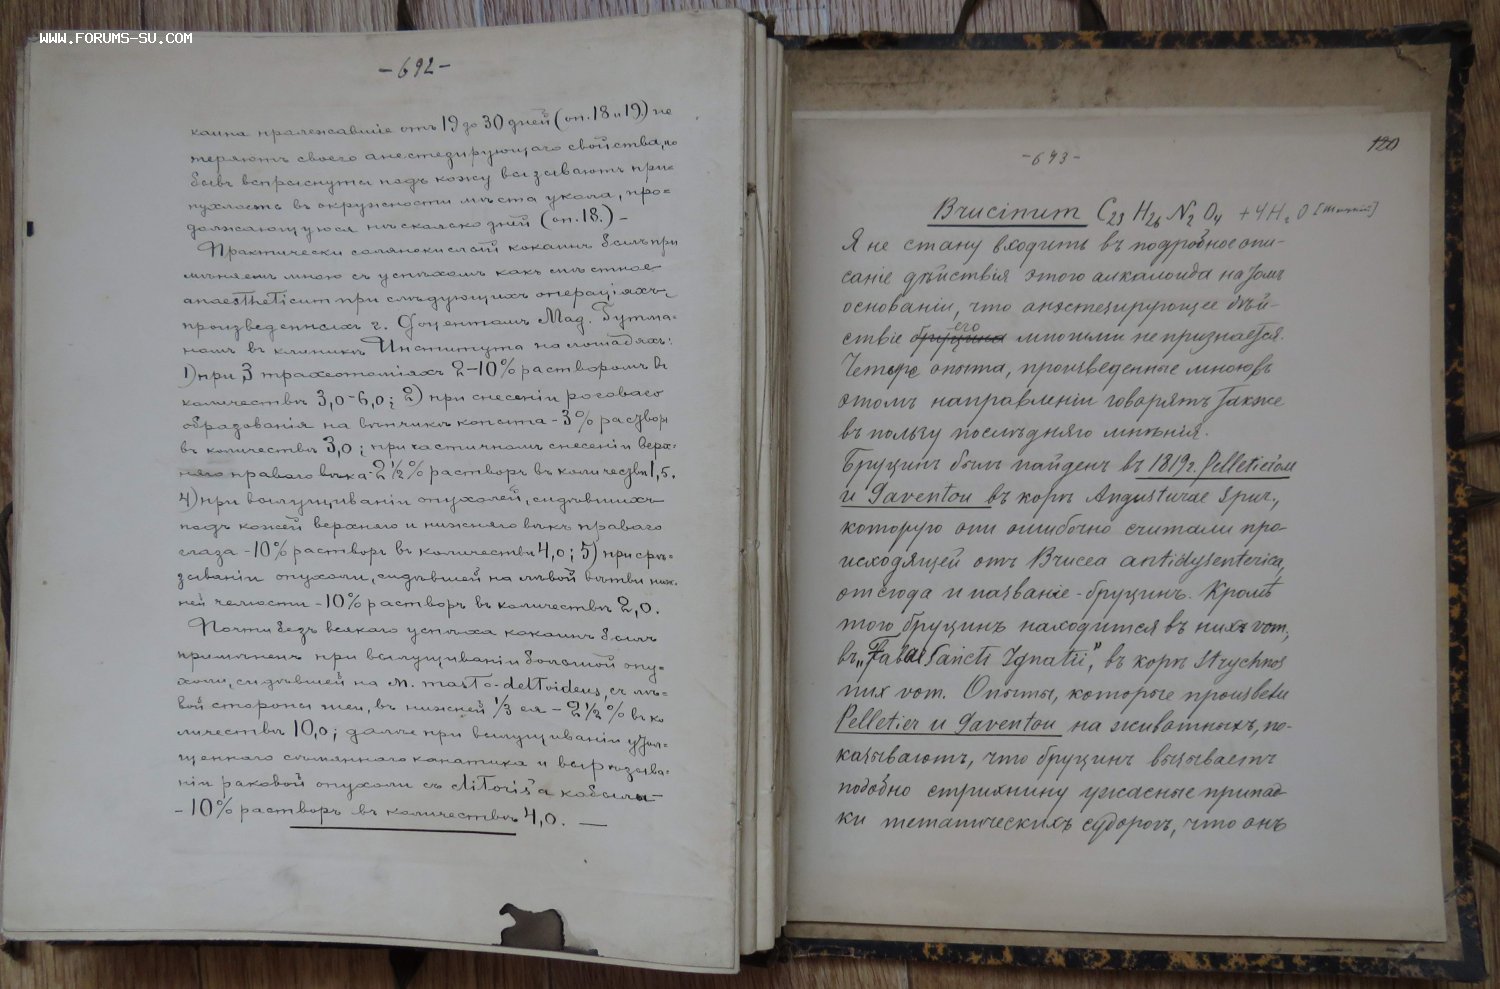 WWW.FORUMS-SU.COM
-692-
каина пролежавшіе отъ 19 до 30 дней (оп. 18 и 19) не
теряютъ своего анестезирующаго свойства, но
бывъ вспрыснуты подъ кожу вызываютъ при-
пухлость въ окружности мѣста укола, про-
должающуюся нѣсколько дней (оп. 18.) –
Практически солянокислый кокаинъ былъ при
мѣняемъ мною съ успѣхомъ какъ мѣстное
anaestheticum при слѣдующихъ операціяхъ,
произведенныхъ г. Доцентомъ Маг. Гутма-
номъ въ клиникѣ Института на лошадяхъ:
1) при 3 трахеотоміяхъ 2-10% растворомъ въ
количествѣ 3,0-6,0; 2) при снесеніи роговаго
образованія на вѣнчикѣ копыта - 3% растворъ
въ количествѣ 3,0; при частичномъ снесеніи верх-
няго праваго вѣка - 2½% растворъ въ количествѣ 1,5.
4) при вылущиваніи опухолей, сидѣвшихъ
подъ кожей верхняго и нижняго вѣкъ праваго
глаза - 10% растворъ въ количествѣ 4,0; 5) при срѣ-
зываніи опухоли, сидѣвшей на лѣвой вѣтви ниж-
ней челюсти - 10% растворъ въ количествѣ 2,0.
Почти безъ всякаго успѣха кокаинъ былъ
примѣненъ при вылущиваніи большой опу-
холи, сидѣвшей на m. masto-deltoideus, съ лѣ-
вой стороны шеи, въ нижней ⅓ ея - 2½% въ ко
личествѣ 10,0; далѣе при вылущиваніи утол-
щеннаго сѣмяннаго канатика и вырѣзыва-
ніи раковой опухоли съ clitoris'а кобылы
- 10% растворъ въ количествѣ 4,0. —
120
-693-
Brucinum C23 H26 N2 O4 + 4H2O
Я не стану входить въ подробное опи-
саніе дѣйствія этого алкалоида на томъ
основаніи, что анэстезирующее дѣй-
ствіе бруцина его многими не признается.
Четыре опыта, произведенные мною въ
этомъ направленіи говорятъ также
въ пользу послѣдняго мнѣнія.
Бруцинъ былъ найденъ въ 1819 г. Pelletier'ом
и Caventou въ корѣ Angusturae spur.,
которую они ошибочно считали про-
исходящей отъ Brucea antidysenterica,
отсюда и названіе - бруцинъ. Кромѣ
того бруцинъ находится въ nux vom.,
въ „Fabae Sancti Ignatii", въ корѣ Strychnos
nux vom. Опыты, которые произвели
Pelletier и Caventou на животныхъ, по-
казываютъ, что бруцинъ вызываетъ
подобно стрихнину ужасные припад-
ки тетаническихъ судорогъ, что онъ